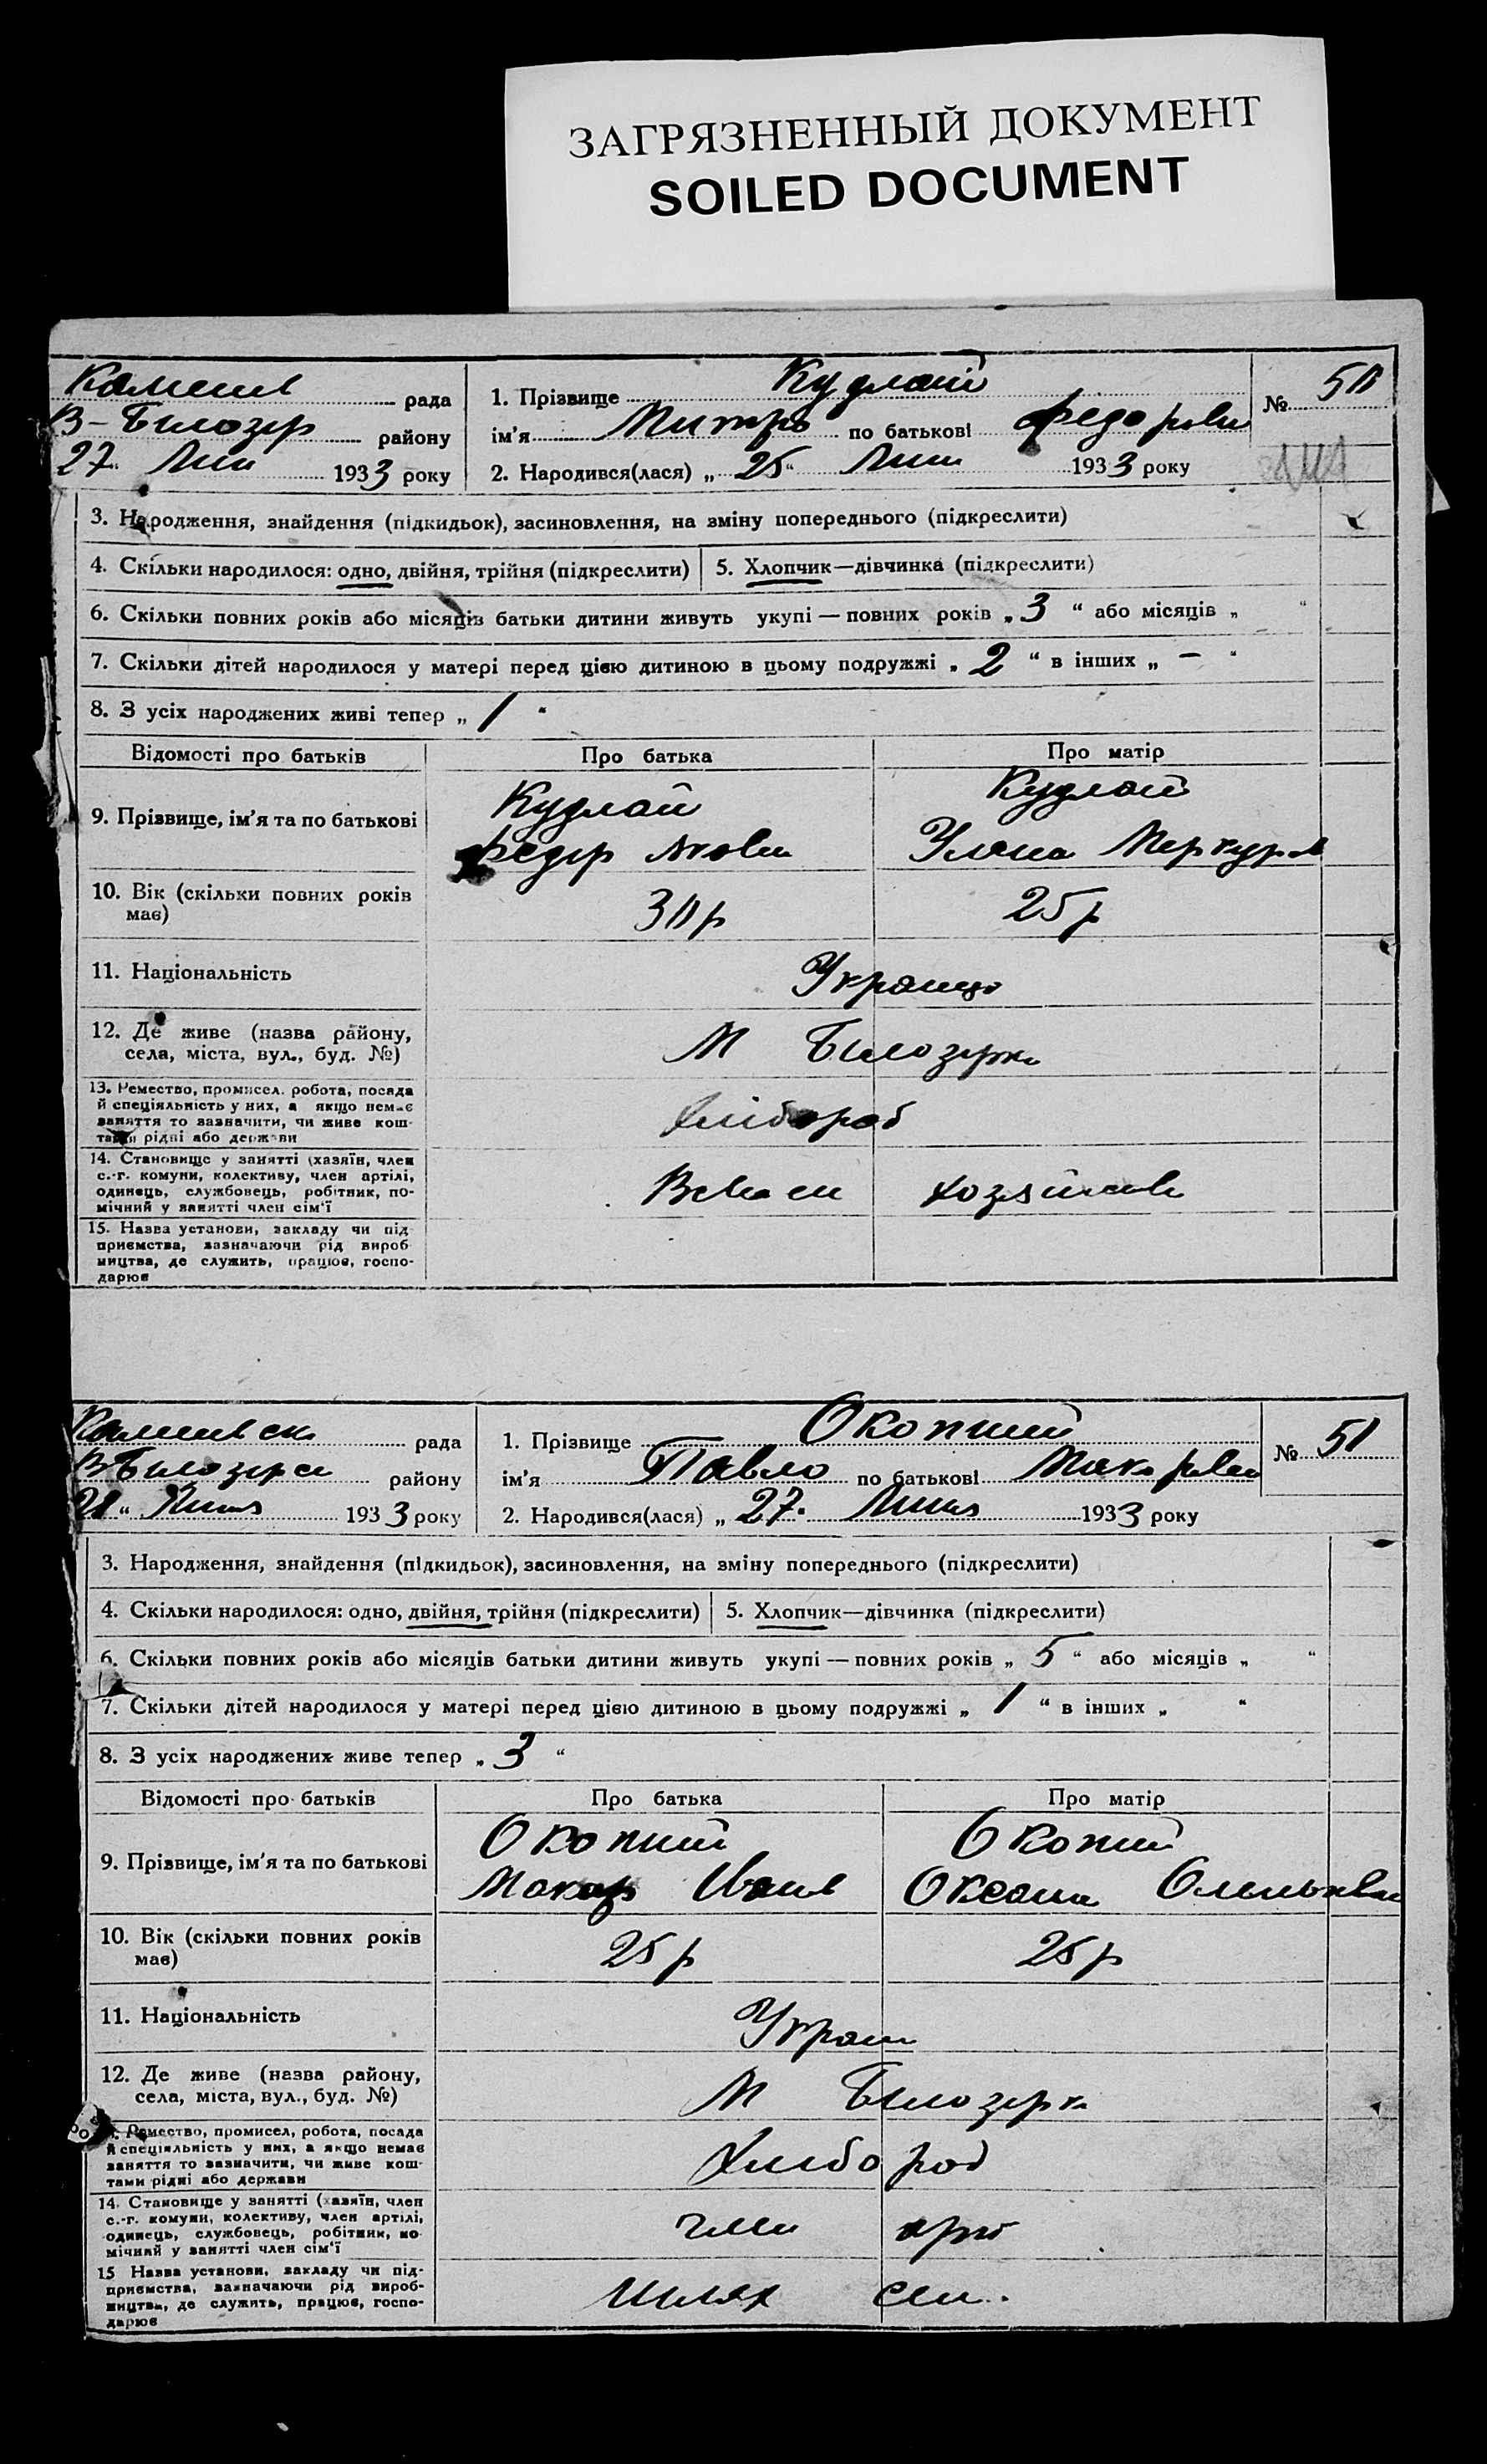 ЗАГРЯЗНЕННЫЙ ДОКУМЕНТ
SOILED DOCUMENT
рада
В-Білозір району
27 1933 року
1. Прізвище Кудлай
ім'я Митро по батькові
2. Народився(лася) „ 25 “ 1933 року
№ 50
3. Народження, знайдення (підкидьок), засиновлення, на зміну попереднього (підкреслити)
4. Скільки народилося: одно, двійня, трійня (підкреслити)
5. Хлопчик—дівчинка (підкреслити)
6. Скільки повних років або місяців батьки дитини живуть укупі — повних років „ 3 “ або місяців „ “
7. Скільки дітей народилося у матері перед цією дитиною в цьому подружжі „ 2 “ в інших „ — “
8. З усіх народжених живі тепер „ 1 “
Відомості про батьків Про батька Про матір
9. Прізвище, ім'я та по батькові
Кудлай Кудлай
Федір Яковл Уляна Меркур
10. Вік (скільки повних років
має)
30 р 25 р
11. Національність
12. Де живе (назва району,
села, міста, вул., буд. №)
М Білозірка
13. Ремество, промисел, робота, посада
й спеціяльність у них, а якщо немає
заняття то зазначити, чи живе кош-
тами рідні або держави
Хлібороб
14. Становище у занятті (хазяїн, член
с.-г. комуни, колективу, член артілі,
одинець, службовець, робітник, по-
мічний у занятті член сім'ї
15. Назва установи, закладу чи під-
приємства, зазначаючи рід вироб-
ництва, де служить, працює, госпо-
дарює
рада
району
1933 року
1. Прізвище Окопний
ім'я Павло по батькові
2. Народився(лася) „ 27 “ 1933 року
№ 51
3. Народження, знайдення (підкидьок), засиновлення, на зміну попереднього (підкреслити)
4. Скільки народилося: одно, двійня, трійня (підкреслити)
5. Хлопчик—дівчинка (підкреслити)
6. Скільки повних років або місяців батьки дитини живуть укупі — повних років „ 5 “ або місяців „ “
7. Скільки дітей народилося у матері перед цією дитиною в цьому подружжі „ 1 “ в інших „ “
8. З усіх народжених живе тепер „ 3 “
Відомості про батьків Про батька Про матір
9. Прізвище, ім'я та по батькові
Окопний Окопний
Макар Іванов Оксана
10. Вік (скільки повних років
має)
25 р 25 р
11. Національність
Украин
12. Де живе (назва району,
села, міста, вул., буд. №)
М Білозірк
Ремество, промисел, робота, посада
й спеціяльність у них, а якщо немає
заняття то зазначити, чи живе кош-
тами рідні або держави
Хлібороб
14. Становище у занятті (хазяїн, член
с.-г. комуни, колективу, член артілі,
одинець, службовець, робітник, по-
мічний у занятті член сім'ї
член арт
15 Назва установи, закладу чи під-
приємства, зазначаючи рід вироб-
ництва, де служить, працює, госпо-
дарює
Шлях